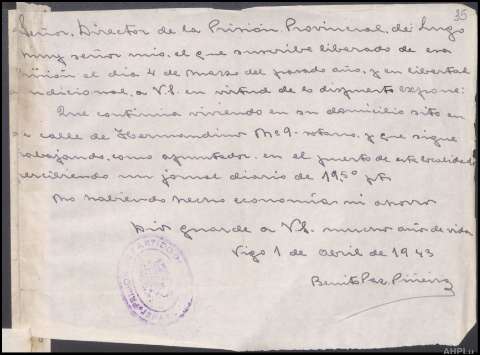 35
Señor. Director de la Prisión Provincial, de Lugo
muy señor mio, el que suscribe liberado de esa
prisión el dia 4 de Marzo del pasado año, y en libertad
condicional, a V.S. en virtud de lo dispuesto expone:
Que continua viviendo en su domicilio sito en
calle de Nº 9- sotano, y que sigue
trabajando, como apuntador. en el puerto de esta localidad
percibiendo un jornal diario de 19,50 pts
No habiendo hecho economías ni ahorro
Dios guarde a V.S. mucho año de vida
Vigo 1 de Abril de 1943
Benito Paz. Piñeiro
AHPLu